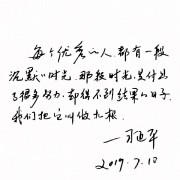 每个优秀的人，都有一段
沉默的时光。那段时光，是付出
了很多努力，却得不到结果的日子，
我们把它叫做扎根。
2019.7.10